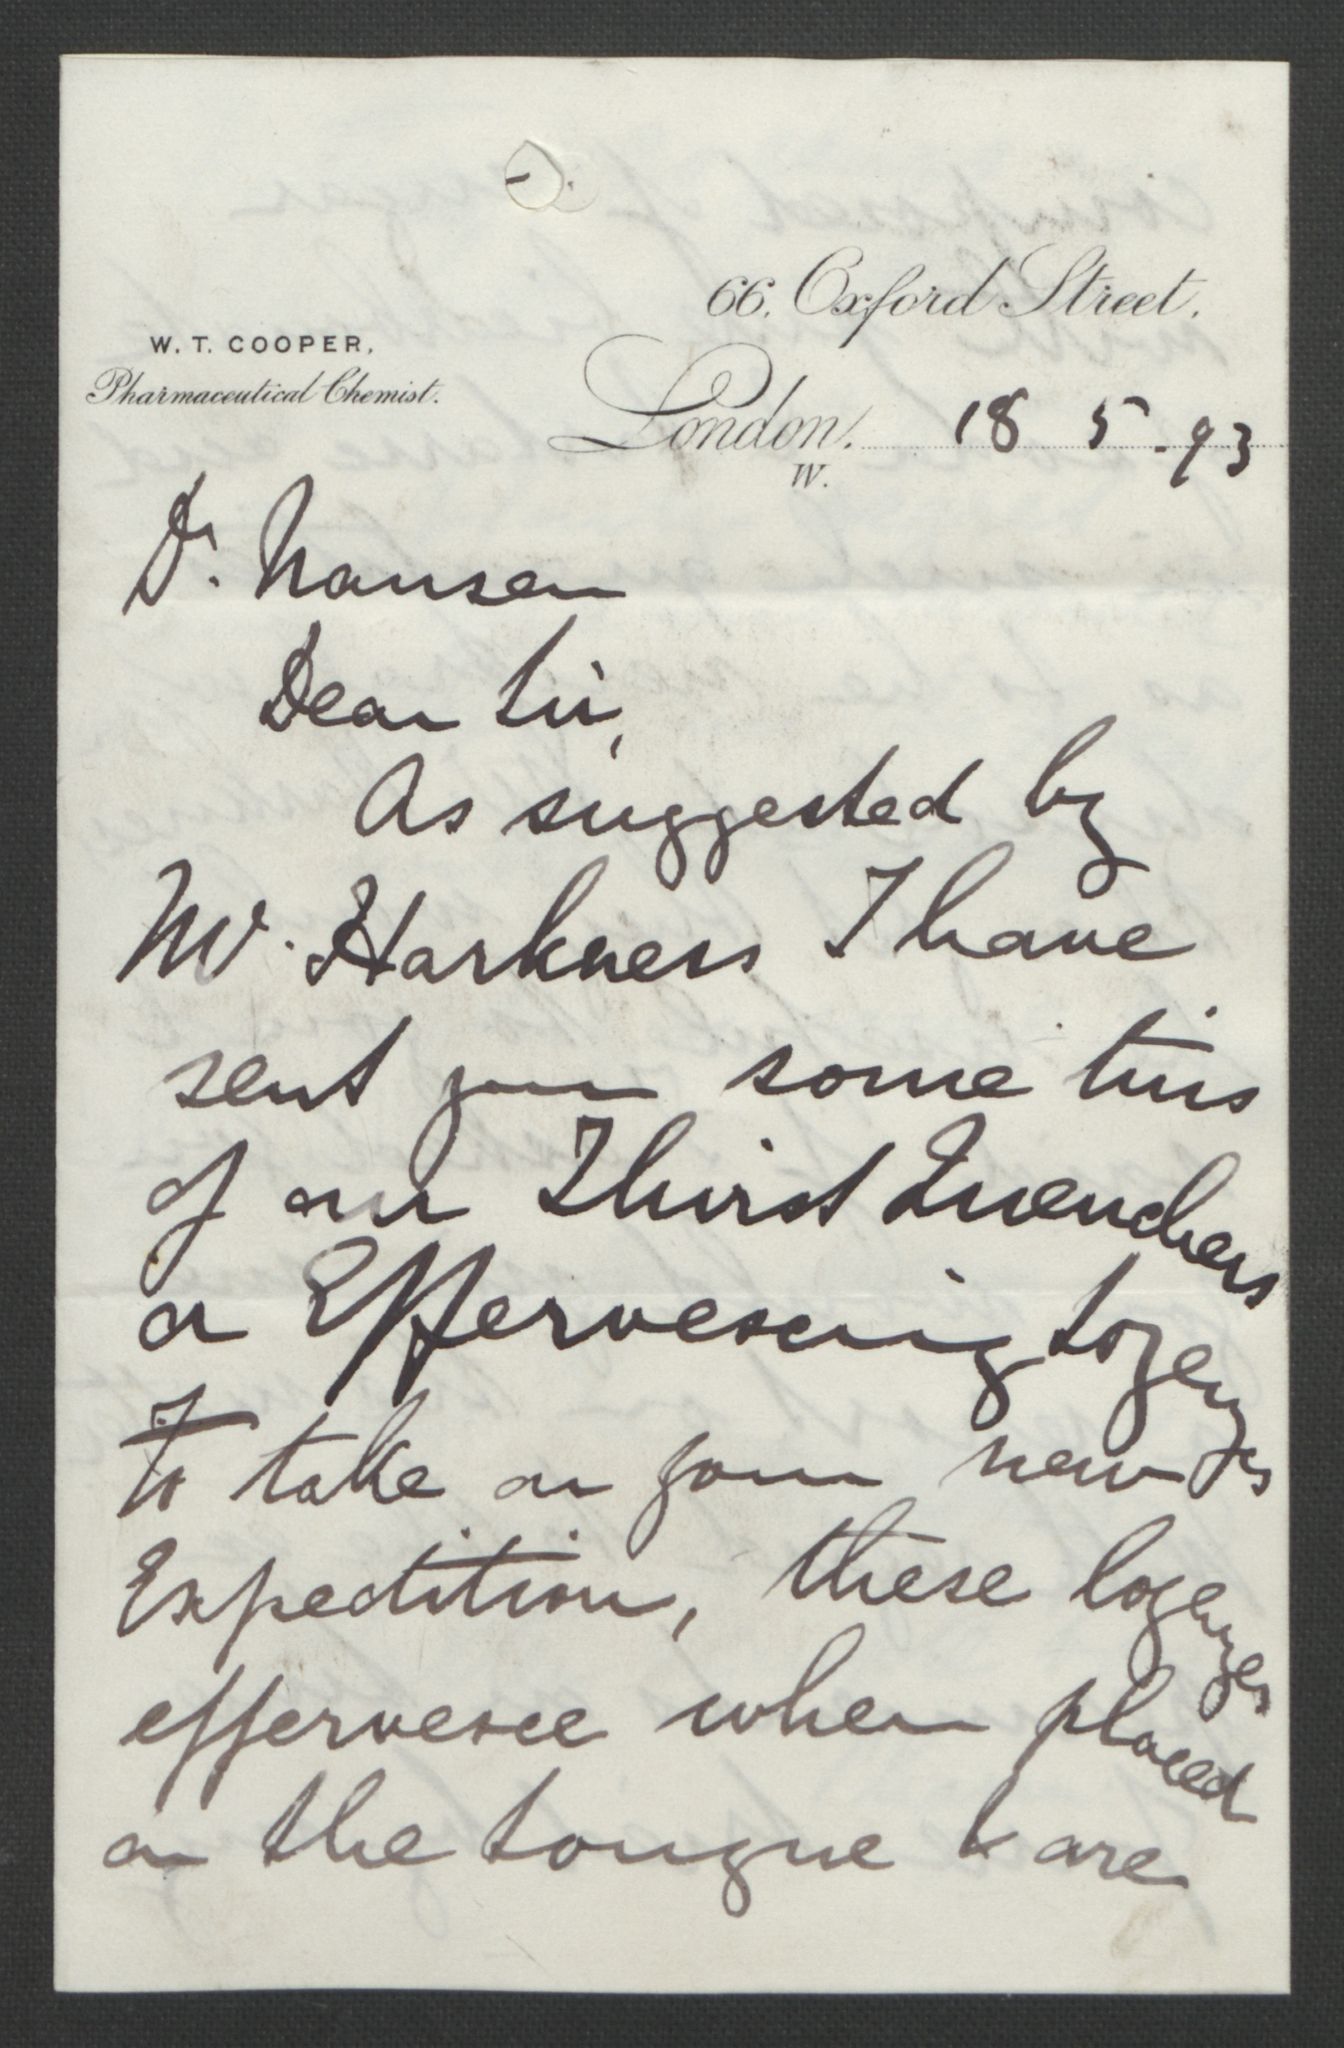 66. Oxford Street.
W. T. COOPER,
Pharmaceutical Chemist.
London. 18 5 . 93
W.
Dr. Nansen
Dear Sir,
As suggested by
Mr. Harkness I have
sent you some tins
of our Thirst Quenchers
or Effervescing Lozenges
To take on your new
Expedition, these lozenges
effervesce when placed
on the tongue & are